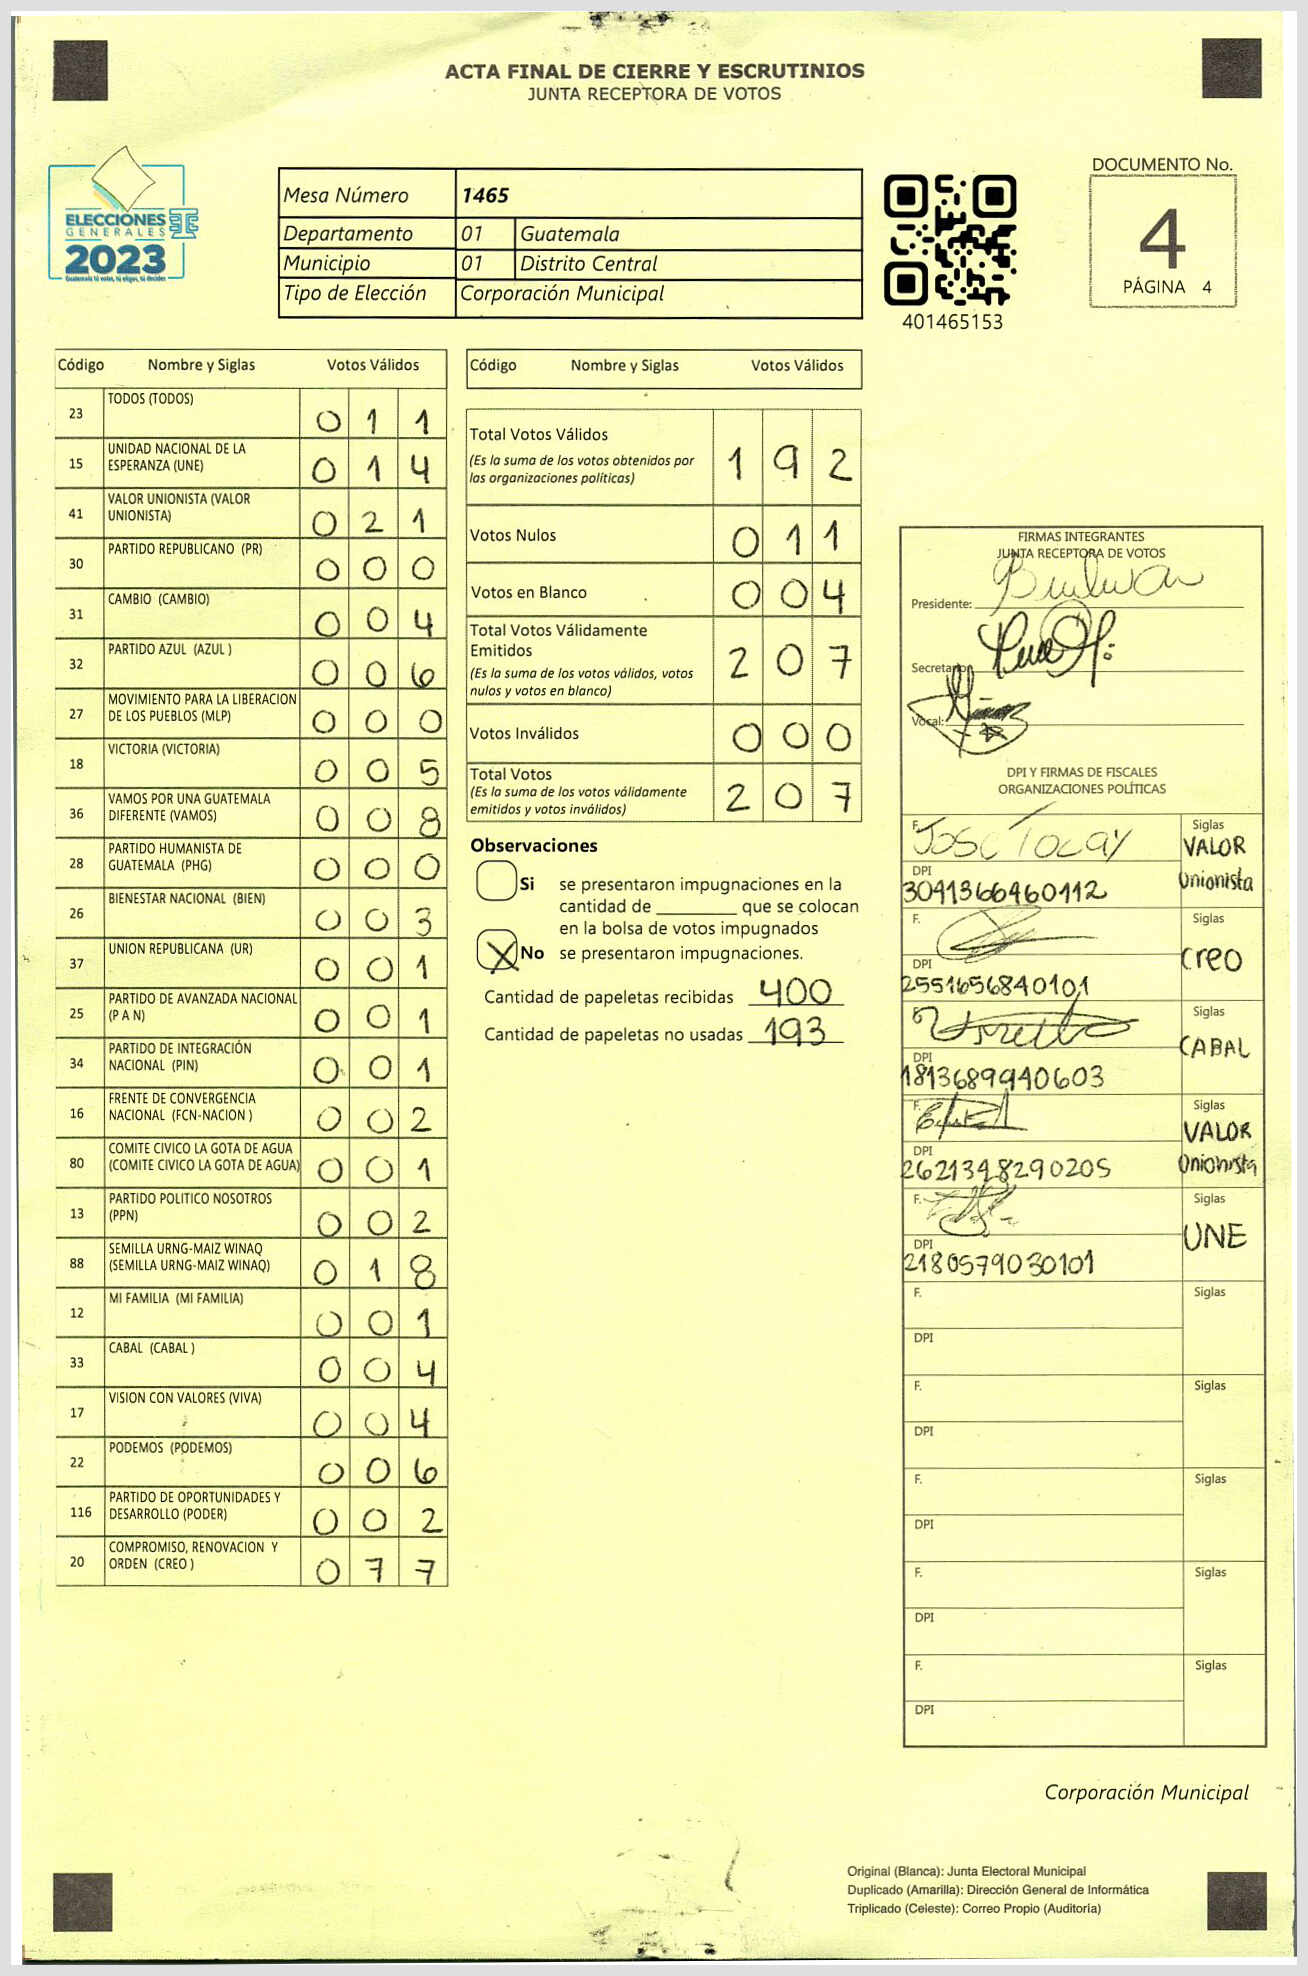 ACTA FINAL DE CIERRE Y ESCRUTINIOS
JUNTA RECEPTORA DE VOTOS
ELECCIONES
GENERALES
2023
Mesa Número 1465
Departamento 01 Guatemala
Municipio 01 Distrito Central
Tipo de Elección Corporación Municipal
401465153
DOCUMENTO No.
4
PÁGINA 4
Código Nombre y Siglas Votos Válidos
23 TODOS (TODOS) 0 1 1
15 UNIDAD NACIONAL DE LA
ESPERANZA (UNE) 0 1 4
41 VALOR UNIONISTA (VALOR
UNIONISTA) 0 2 1
30 PARTIDO REPUBLICANO (PR) 0 0 0
31 CAMBIO (CAMBIO) 0 0 4
32 PARTIDO AZUL (AZUL ) 0 0 6
27 MOVIMIENTO PARA LA LIBERACION
DE LOS PUEBLOS (MLP) 0 0 0
18 VICTORIA (VICTORIA) 0 0 5
36 VAMOS POR UNA GUATEMALA
DIFERENTE (VAMOS) 0 0 8
28 PARTIDO HUMANISTA DE
GUATEMALA (PHG) 0 0 0
26 BIENESTAR NACIONAL (BIEN) 0 0 3
37 UNION REPUBLICANA (UR) 0 0 1
25 PARTIDO DE AVANZADA NACIONAL
(P A N) 0 0 1
34 PARTIDO DE INTEGRACIÓN
NACIONAL (PIN) 0 0 1
16 FRENTE DE CONVERGENCIA
NACIONAL (FCN-NACION ) 0 0 2
80 COMITE CIVICO LA GOTA DE AGUA
(COMITE CIVICO LA GOTA DE AGUA) 0 0 1
13 PARTIDO POLITICO NOSOTROS
(PPN) 0 0 2
88 SEMILLA URNG-MAIZ WINAQ
(SEMILLA URNG-MAIZ WINAQ) 0 1 8
12 MI FAMILIA (MI FAMILIA) 0 0 1
33 CABAL (CABAL ) 0 0 4
17 VISION CON VALORES (VIVA) 0 0 4
22 PODEMOS (PODEMOS) 0 0 6
116 PARTIDO DE OPORTUNIDADES Y
DESARROLLO (PODER) 0 0 2
20 COMPROMISO, RENOVACION Y
ORDEN (CREO ) 0 7 7
Código Nombre y Siglas Votos Válidos
Total Votos Válidos 1 9 2
(Es la suma de los votos obtenidos por
las organizaciones políticas)
Votos Nulos 0 1 1
Votos en Blanco 0 0 4
Total Votos Válidamente
Emitidos 2 0 7
(Es la suma de los votos válidos, votos
nulos y votos en blanco)
Votos Inválidos 0 0 0
Total Votos 2 0 7
(Es la suma de los votos válidamente
emitidos y votos inválidos)
Observaciones
Si se presentaron impugnaciones en la
cantidad de ________ que se colocan
en la bolsa de votos impugnados
X No se presentaron impugnaciones.
Cantidad de papeletas recibidas 400
Cantidad de papeletas no usadas 193
FIRMAS INTEGRANTES
JUNTA RECEPTORA DE VOTOS
Presidente:
Secretario:
Vocal:
DPI Y FIRMAS DE FISCALES
ORGANIZACIONES POLÍTICAS
F. José Tocay Siglas
VALOR
DPI Unionista
3041366460112
F. Siglas
Creo
DPI
2551656840101
F. Siglas
CABAL
DPI
1813689940603
F. Siglas
VALOR
DPI Unionista
2621348290205
F. Siglas
UNE
DPI
2180579030101
F. Siglas
DPI
F. Siglas
DPI
F. Siglas
DPI
F. Siglas
DPI
F. Siglas
DPI
Corporación Municipal
Original (Blanca): Junta Electoral Municipal
Duplicado (Amarilla): Dirección General de Informática
Triplicado (Celeste): Correo Propio (Auditoría)